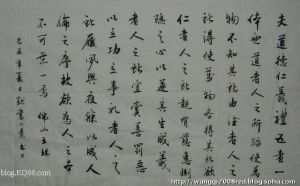 夫道德仁義禮五者一
体也道者人之所蹈使萬
物不知其所由德者人之
所得使萬物各得其所欲
仁者人之所親有慈惠惻
隱之心以遂其生成義
者人之所宜賞善罰惡
以立功立事禮者人之
所履夙興夜寐以成人
倫之序夫欲為人之本
不可無一焉 佛山
己丑年夏
blog.KQ88.com
http://wangqi2008red.blog.sohu.com